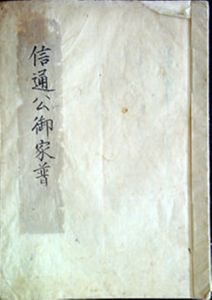 信通公御家普